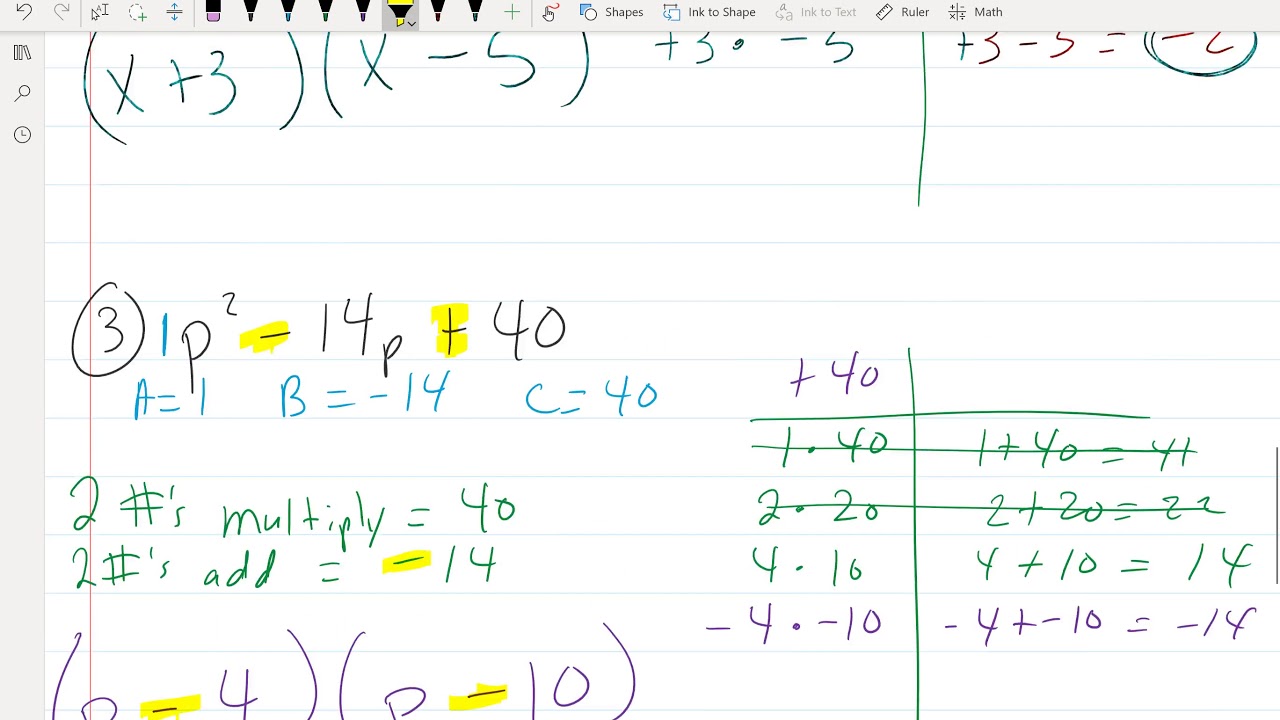 Shapes Ink to Shape Ink to Text Ruler Math
(x + 3)(x - 5) +3 · -5 +3 - 5 = -2
③ 1p² - 14p + 40
A = 1 B = -14 C = 40
2 #'s multiply = 40
2 #'s add = -14
+40
1 · 40 1 + 40 = 41
2 · 20 2 + 20 = 22
4 · 10 4 + 10 = 14
-4 · -10 -4 + -10 = -14
(p - 4)(p - 10)